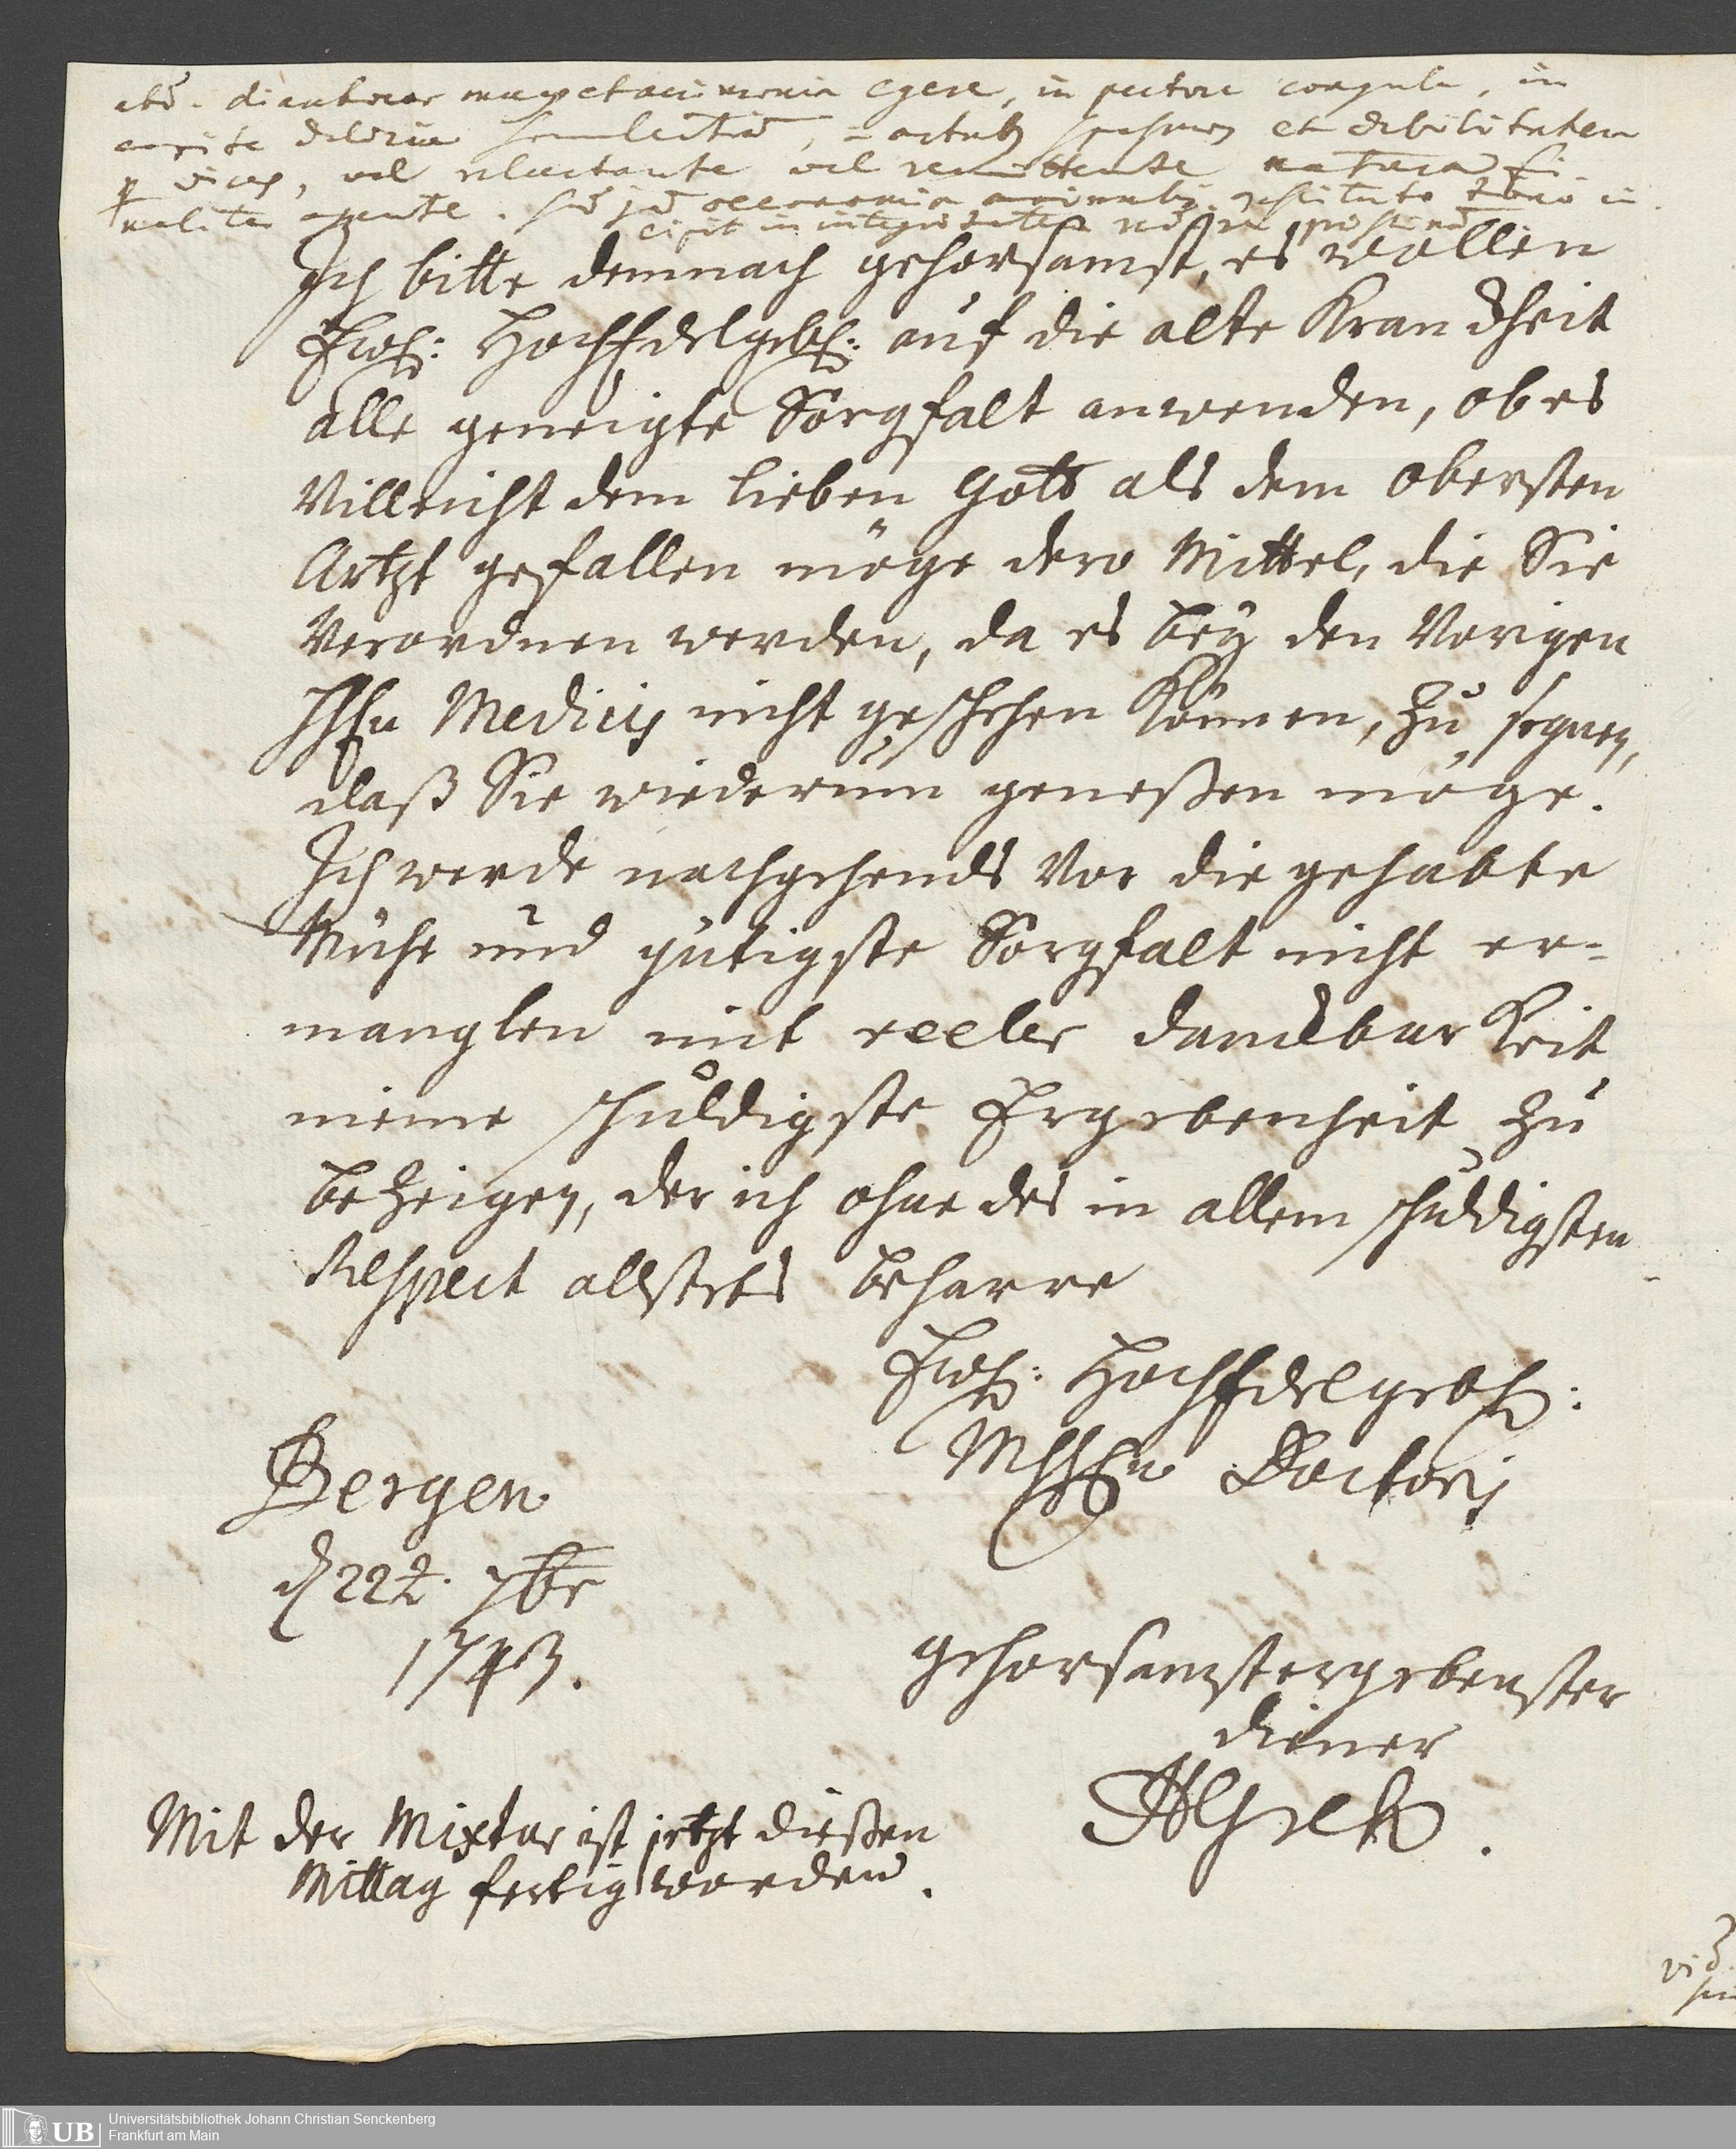 egere, in pectore coagula, in
capite deliria, et debilitatem
p vices, vel reluctante vel remittente natura, fi-
naliter agente.
in integritatem
Ich bitte demnach gehorsamst, es wollen
Ewh: HochEdelgebh: auf die alte Kranckheit
alle geneigte Sorgfalt anwenden, ob es
Villeicht dem lieben Gott als dem obersten
Artzt gefallen möge dero Mittel, die Sie
Verordnen werden, da es bey den Vorigen
HHEn Medicis nicht geschehen können, zu segnen,
daß Sie wiederum geneßen möge.
Ich werde nachgehends vor die gehabte
Mühe und gütigste Sorgfalt nicht er-
manglen mit reeller danckbarkeit
meine schuldigste Ergebenheit zu
bezeigen, der ich ohne des in allem schuldigsten
Respect allstets beharre
Ewh: HochEdelgebh:
MHHEn Doctoris
Bergen
d 22t. 7br
1743.
gehorsamstergebenster
diener
Mit der Mixtur ist jetzt dießen
Mittag fertig worden.
UB
Universitätsbibliothek Johann Christian Senckenberg
Frankfurt am Main